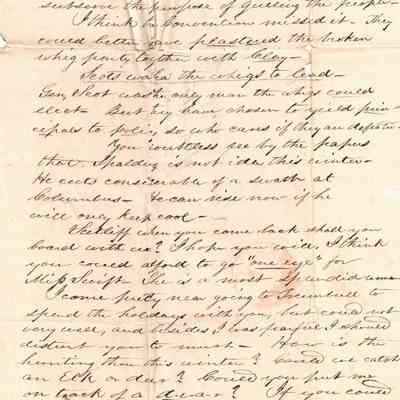 subserve the purpose of gulling the people.
I think the Convention missed it. They
could better have plastered the broken
whig party together with Clay—
Scots walks the whigs to lead—
Gen, Scot was the only man the whigs could
elect. But they have chosen to yield prin-
cipals to policy, so who cares if they are defeated
You doubtless see by the papers
that Spalding is not idle this winter—
He cuts considerable of a swath at
Columbus— He can rise now if he
will only keep cool—
when you come back shall you
board with us? I hope you will. I think
you could afford to go "one eye" for
Miss Swift. She is a most splendid woman
I came pretty near going to Trumbull to
spend the holidays with you, but could not
very well, and besides I was fearful I should
distract you to much— How is the
hunting than this winter? Could we catch
an Elk or dear? Could you put me
on track of a dear? If you could